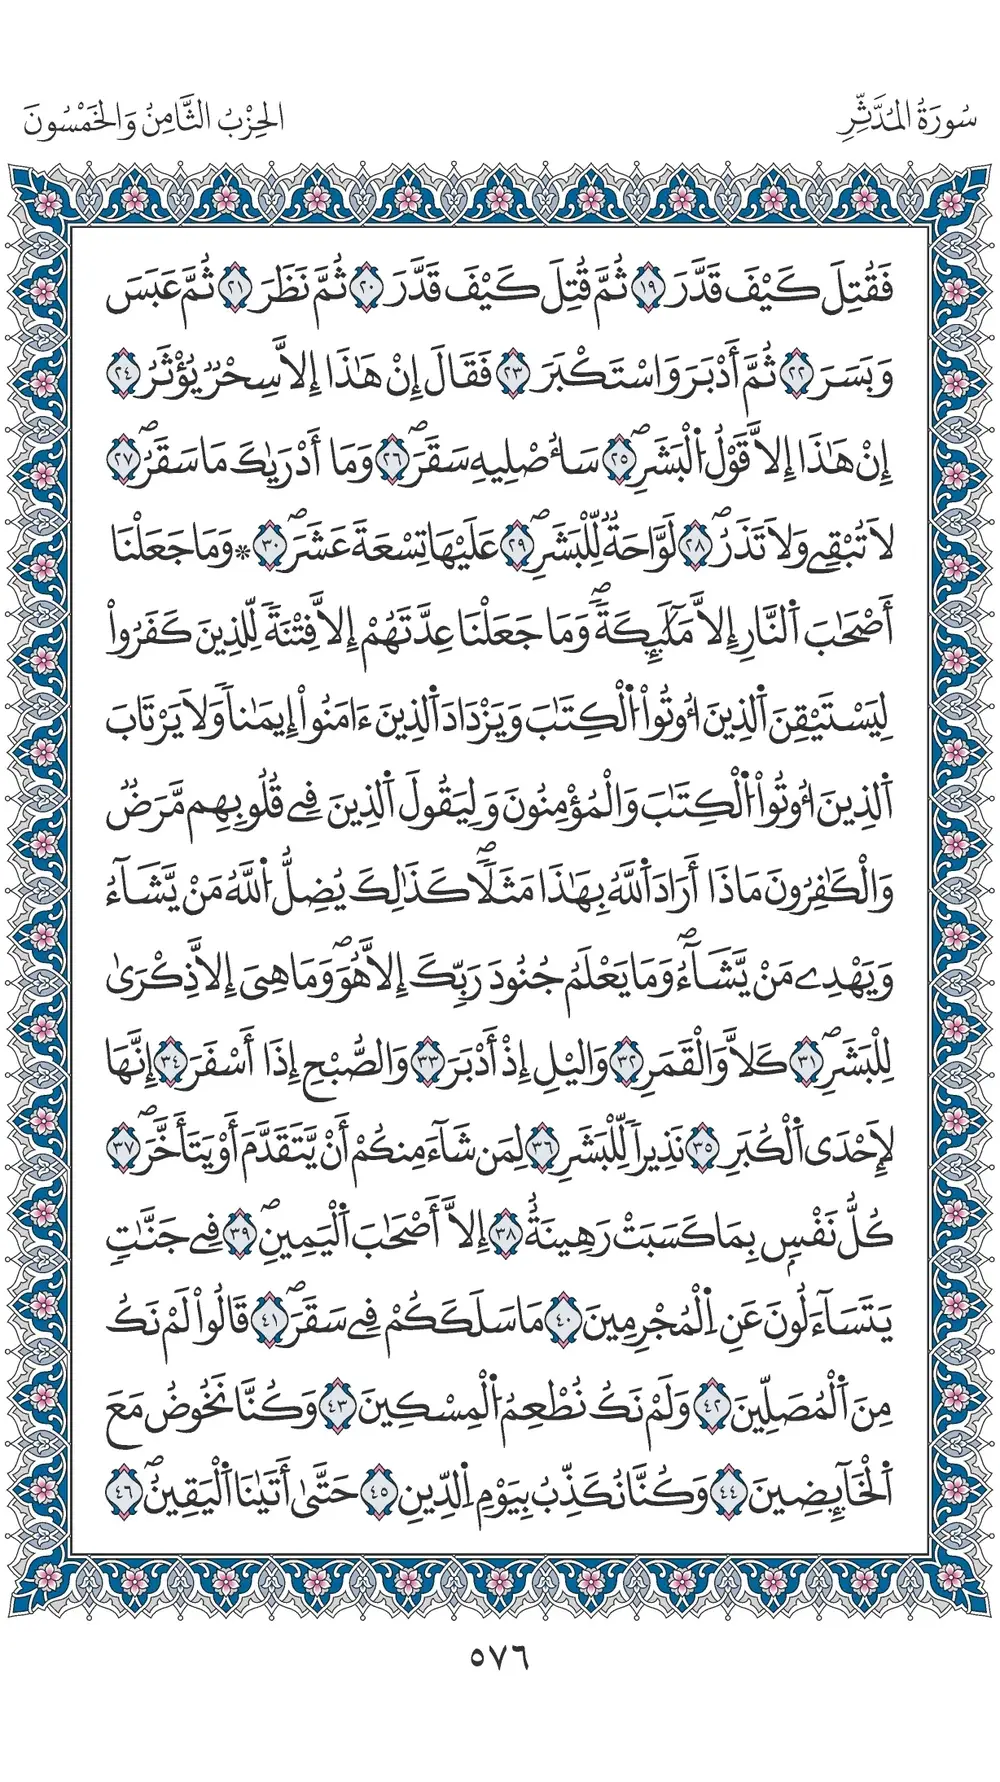 سُورَةُ الْمُدَّثِّرِ
الحِزْبُ الثَّامِنُ وَالخَمْسُونَ
فَقُتِلَ كَيْفَ قَدَّرَ ١٩ ثُمَّ قُتِلَ كَيْفَ قَدَّرَ ٢٠ ثُمَّ نَظَرَ ٢١ ثُمَّ عَبَسَ
وَبَسَرَ ٢٢ ثُمَّ أَدْبَرَ وَاسْتَكْبَرَ ٢٣ فَقَالَ إِنْ هَٰذَا إِلاَّ سِحْرٌ يُؤْثَرُ ٢٤
إِنْ هَٰذَا إِلاَّ قَوْلُ اُ۬لْبَشَرِۖ ٢٥ سَأُصْلِيهِ سَقَرَۖ ٢٦ وَمَا أَدْرَيٰكَ مَا سَقَرُۖ ٢٧
لاَ تُبْقِے وَلاَ تَذَرُۖ ٢٨ لَوَّاحَةٌ لِّلْبَشَرِۖ ٢٩ عَلَيْهَا تِسْعَةَ عَشَرَۖ ٣٠ * وَمَا جَعَلْنَا
أَصْحَٰبَ اَ۬لنَّارِ إِلاَّ مَلَٰٓئِكَةٗۖ وَمَا جَعَلْنَا عِدَّتَهُمْ إِلاَّ فِتْنَةٗ لِّلذِينَ كَفَرُواْ
لِيَسْتَيْقِنَ اَ۬لذِينَ أُوتُواْ اُ۬لْكِتَٰبَ وَيَزْدَادَ اَ۬لذِينَ ءَامَنُواْ إِيمَٰناٗ وَلاَ يَرْتَابَ
اَ۬لذِينَ أُوتُواْ اُ۬لْكِتَٰبَ وَالْمُؤْمِنُونَ وَلِيَقُولَ اَ۬لذِينَ فِے قُلُوبِهِم مَّرَضٌ
وَالْكَٰفِرُونَ مَاذَا أَرَادَ اَ۬للَّهُ بِهَٰذَا مَثَلاٗۖ كَذَٰلِكَ يُضِلُّ اُ۬للَّهُ مَنْ يَّشَآءُ
وَيَهْدِے مَنْ يَّشَآءُۖ وَمَا يَعْلَمُ جُنُودَ رَبِّكَ إِلاَّ هُوَۖ وَمَا هِيَ إِلاَّ ذِكْرَىٰ
لِلْبَشَرِۖ ٣١ كَلاَّ وَالْقَمَرِ ٣٢ وَاليْلِ إِذْ أَدْبَرَ ٣٣ وَالصُّبْحِ إِذَا أَسْفَرَ ٣٤ إِنَّهَا
لَإِحْدَى اَ۬لْكُبَرِ ٣٥ نَذِيراٗ لِّلْبَشَرِ ٣٦ لِمَن شَآءَ مِنكُمْ أَنْ يَّتَقَدَّمَ أَوْ يَتَأَخَّرَۖ ٣٧
كُلُّ نَفْسِۢ بِمَا كَسَبَتْ رَهِينَةٌ ٣٨ إِلاَّ أَصْحَٰبَ اَ۬لْيَمِينِۖ ٣٩ فِے جَنَّٰتٖ
يَتَسَآءَلُونَ عَنِ اِ۬لْمُجْرِمِينَ ٤٠ مَا سَلَكَكُمْ فِے سَقَرَۖ ٤١ قَالُواْ لَمْ نَكُ
مِنَ اَ۬لْمُصَلِّينَ ٤٢ وَلَمْ نَكُ نُطْعِمُ اُ۬لْمِسْكِينَ ٤٣ وَكُنَّا نَخُوضُ مَعَ
اَ۬لْخَآئِضِينَ ٤٤ وَكُنَّا نُكَذِّبُ بِيَوْمِ اِ۬لدِّينِ ٤٥ حَتَّىٰ أَتَيٰنَا اَ۬لْيَقِينُۖ ٤٦
٥٧٦